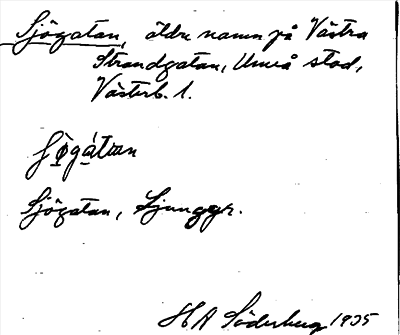 Sjögatan, äldre namn på Västra
Strandgatan, Umeå stad,
Västerb. l.
Sjögatan, Ljunggr.
H A Söderberg 1935